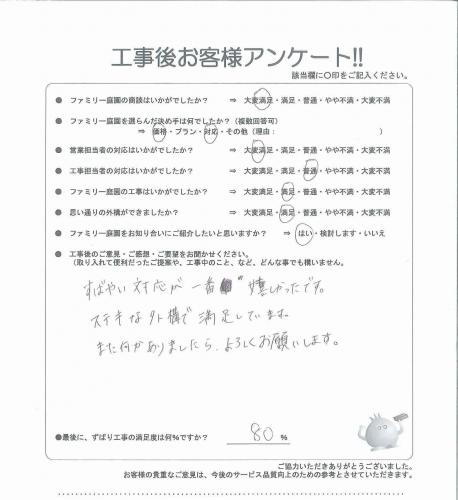 工事後お客様アンケート!!
該当欄に○印をご記入ください。
● ファミリー庭園の商談はいかがでしたか? ⇒ 大変満足・満足・普通・やや不満・大変不満
● ファミリー庭園を選らんだ決め手は何でしたか?(複数回答可)
⇒ 価格・プラン・対応・その他(理由: )
● 営業担当者の対応はいかがでしたか? ⇒ 大変満足・満足・普通・やや不満・大変不満
● 工事担当者の対応はいかがでしたか? ⇒ 大変満足・満足・普通・やや不満・大変不満
● ファミリー庭園の工事はいかがでしたか? ⇒ 大変満足・満足・普通・やや不満・大変不満
● 思い通りの外構ができましたか? ⇒ 大変満足・満足・普通・やや不満・大変不満
● ファミリー庭園をお知り合いにご紹介したいと思いますか? ⇒ はい・検討します・いいえ
● 工事後のご意見・ご感想・ご要望をお聞かせください。
(取り入れて便利だったご提案や、工事中のこと、など、どんな事でも構いません。
すばやい対応が一番 嬉しかったです。
ステキな外構で満足しています。
また何かありましたら、よろしくお願いします。
●最後に、ずばり工事の満足度は何%ですか? 80 %
ご協力いただきありがとうございました。
お客様の貴重なご意見は、今後のサービス品質向上のための参考とさせていただきます。